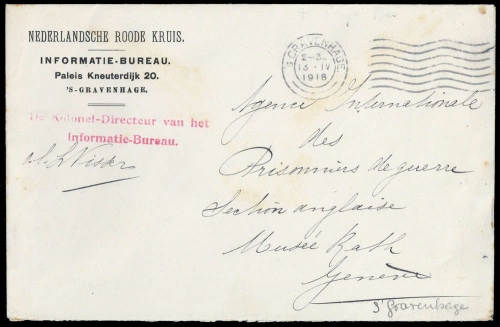 NEDERLANDSCHE ROODE KRUIS.
INFORMATIE-BUREAU.
Paleis Kneuterdijk 20.
'S-GRAVENHAGE.
De Kolonel-Directeur van het
Informatie-Bureau.
'S GRAVENHAGE
13 · IV
1918
Agence Internationale
des
Prisonniers de guerre
Section anglaise
Musée Rath
Genève
s'Gravenhage